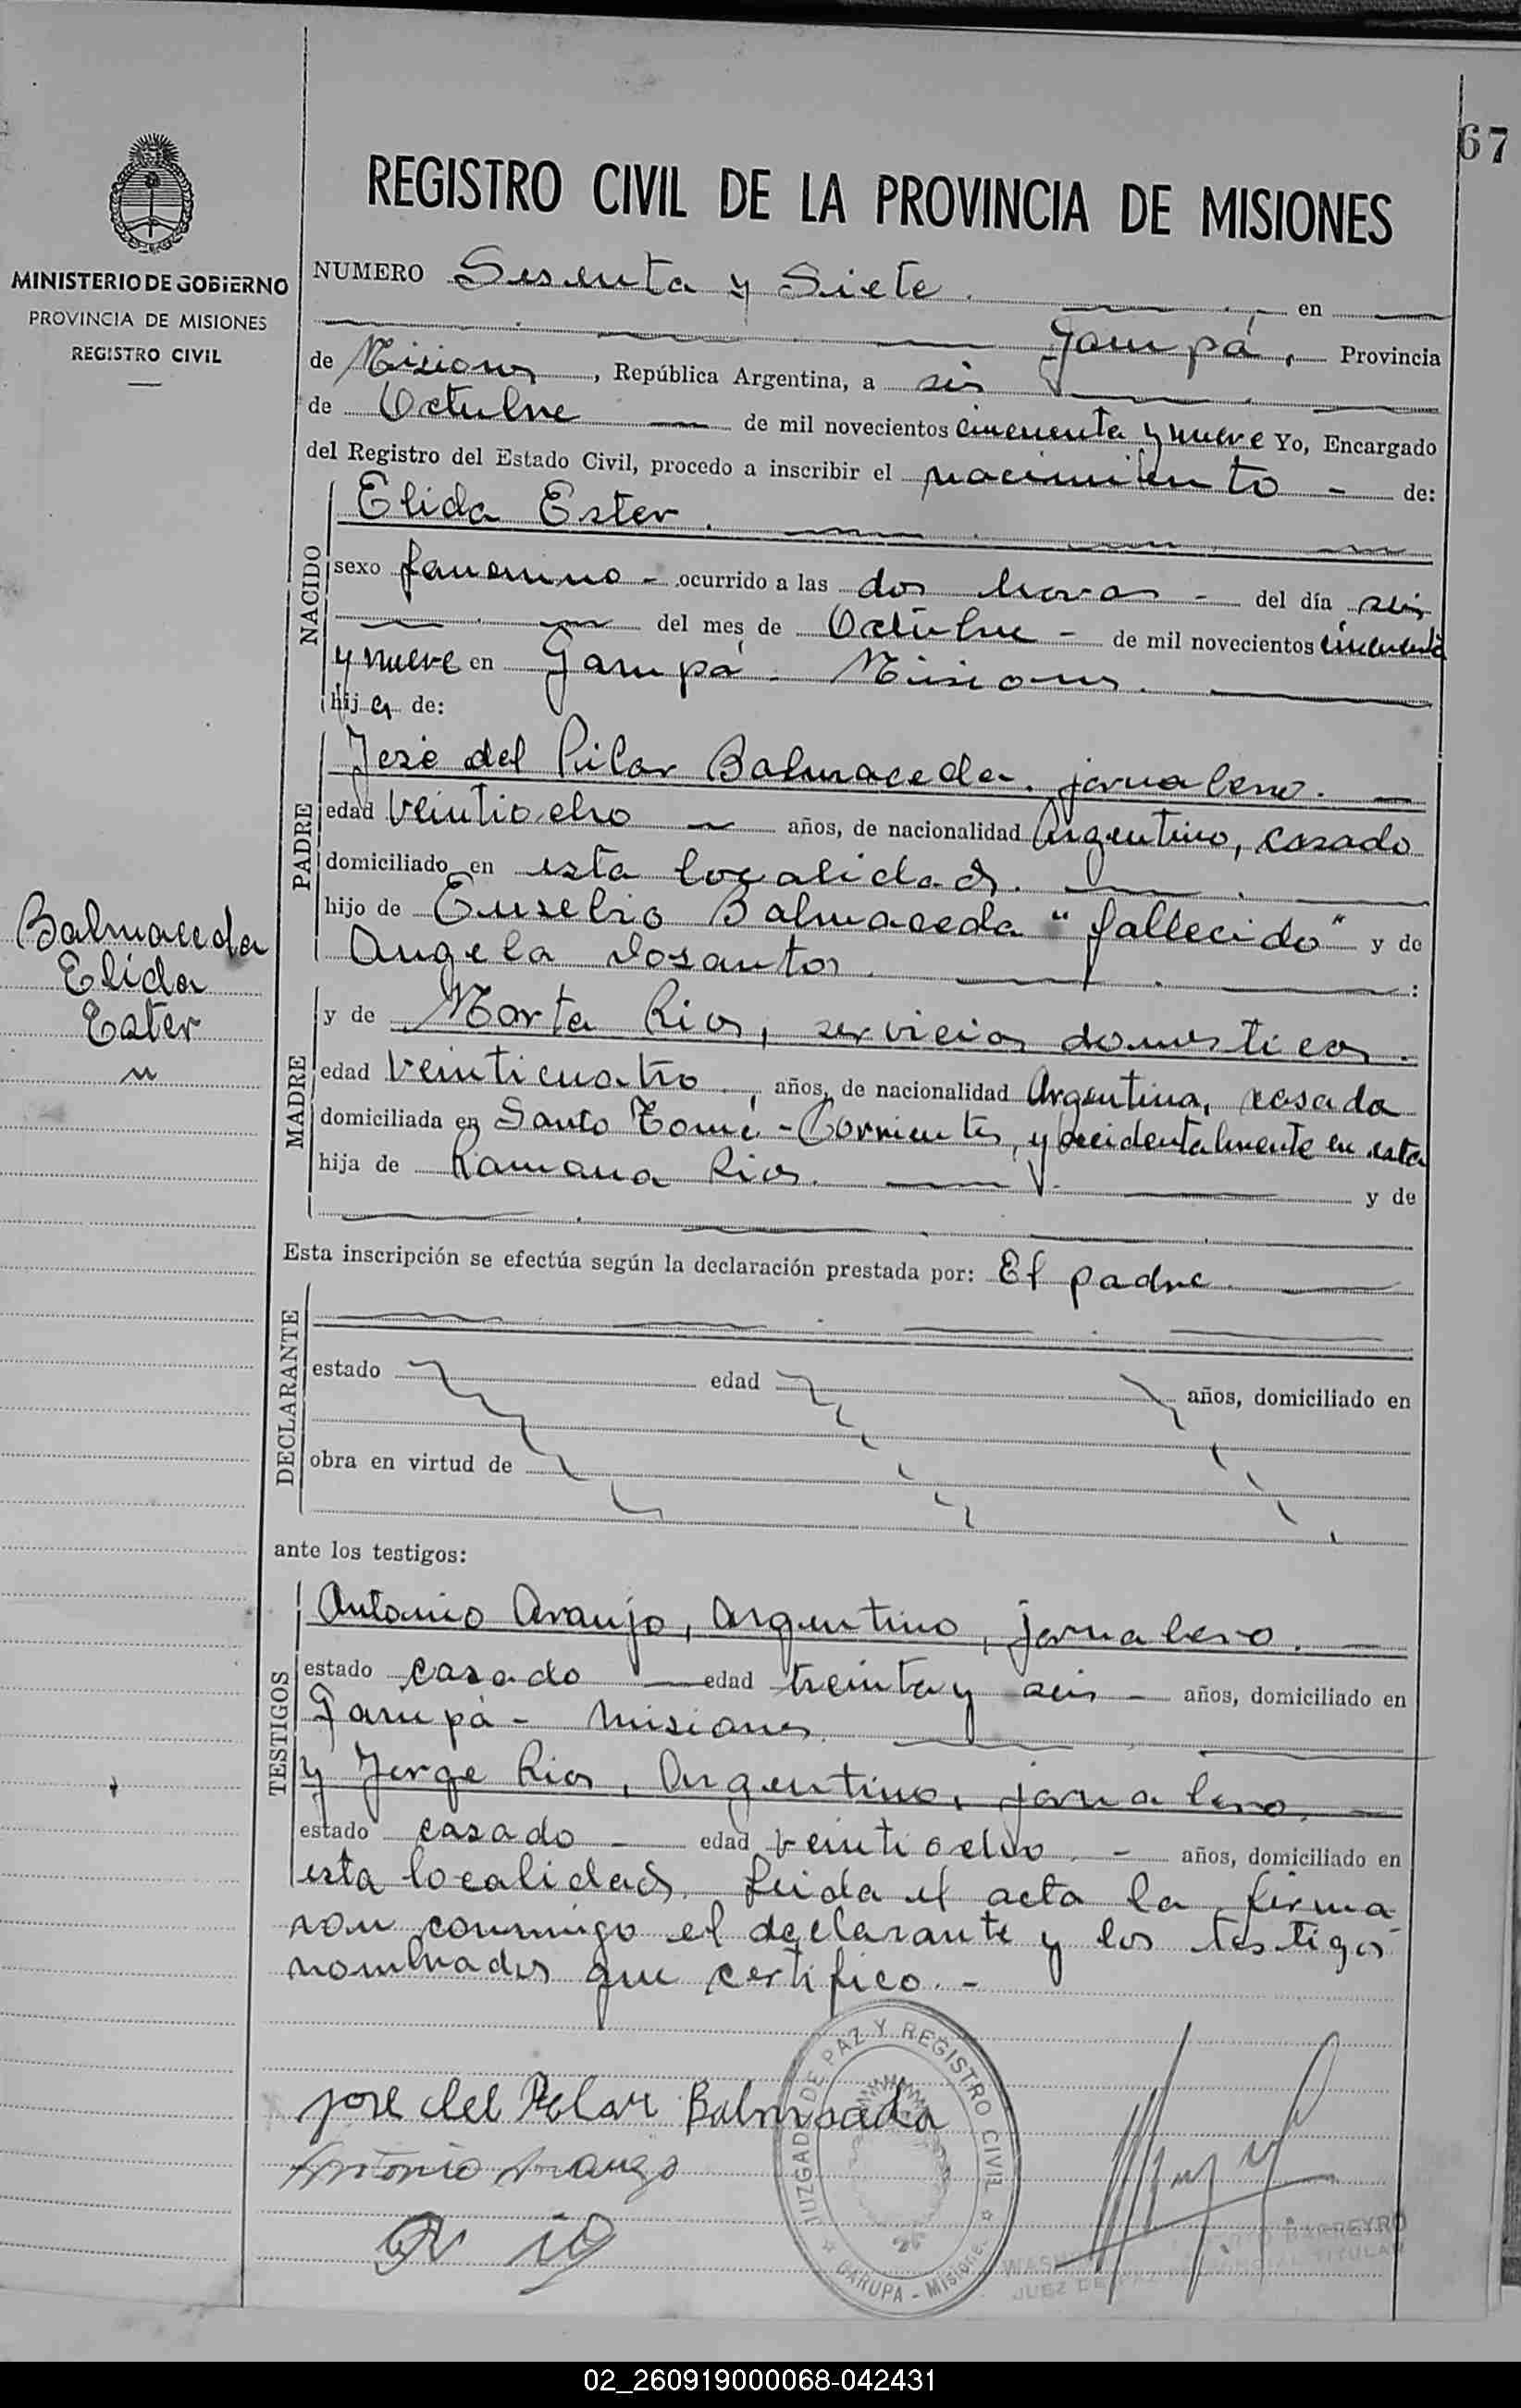 67
REGISTRO CIVIL DE LA PROVINCIA DE MISIONES
MINISTERIO DE GOBIERNO
PROVINCIA DE MISIONES
REGISTRO CIVIL
NUMERO Sesenta y Siete. en
Garupá, Provincia
de Misiones, República Argentina, a seis
de Octubre de mil novecientos cincuenta y nueve Yo, Encargado
del Registro del Estado Civil, procedo a inscribir el nacimiento - de:
NACIDO
Elida Ester.
sexo femenino - ocurrido a las dos horas - del día seis
del mes de Octubre - de mil novecientos cincuenta
y nueve en Garupá. Misiones.
hija de:
PADRE
José del Pilar Balmaceda. jornalero. -
edad veintiocho años, de nacionalidad Argentino, casado
domiciliado en esta localidad.
hijo de Eusebio Balmaceda "fallecido" y de
Angela Dosantos. :
Balmaceda
Elida
Ester
MADRE
y de Marta Rios, servicios domesticos.
edad veinticuatro, años, de nacionalidad Argentina, casada
domiciliada en Santo Tomé - Corrientes, y accidentalmente en esta
hija de Ramona Rios. y de
Esta inscripción se efectúa según la declaración prestada por: El padre
DECLARANTE
estado edad años, domiciliado en
obra en virtud de
ante los testigos:
TESTIGOS
Antonio Araujo, Argentino, jornalero. -
estado casado edad treinta y seis - años, domiciliado en
Garupá - Misiones
y Jorge Rios, Argentino, jornalero. -
estado casado - edad veintiocho. - años, domiciliado en
esta localidad. Leida el acta la firma
ron conmigo el declarante y los testigos
nombrados que certifico. -
JUZGADO DE PAZ Y REGISTRO CIVIL
GARUPA - Misiones
jose del Pilar Balmaceda
Antonio Araujo
BARREYRO
JUEZ DE PAZ TITULAR
02_260919000068-042431